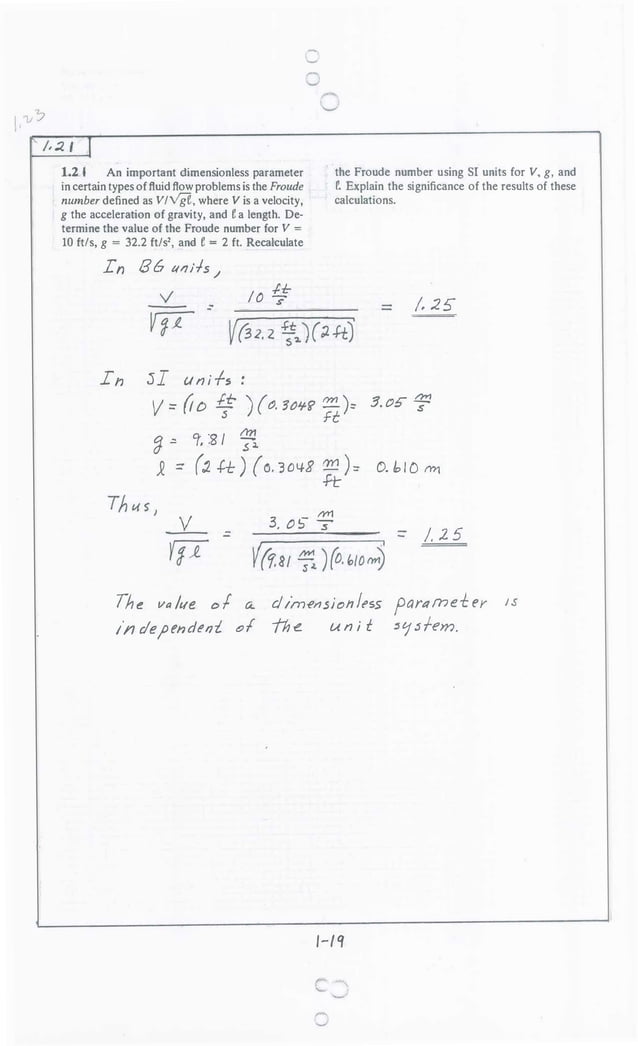 1.23
1.21
1.21 An important dimensionless parameter
in certain types of fluid flow problems is the Froude
number defined as V/√gℓ, where V is a velocity,
g the acceleration of gravity, and ℓ a length. De-
termine the value of the Froude number for V =
10 ft/s, g = 32.2 ft/s², and ℓ = 2 ft. Recalculate
the Froude number using SI units for V, g, and
ℓ. Explain the significance of the results of these
calculations.
In BG units,
V/√gℓ = 10 ft/s / √(32.2 ft/s²)(2 ft) = 1.25
In SI units :
V = (10 ft/s)(0.3048 m/ft) = 3.05 m/s
g = 9.81 m/s²
ℓ = (2 ft)(0.3048 m/ft) = 0.610 m
Thus,
V/√gℓ = 3.05 m/s / √(9.81 m/s²)(0.610 m) = 1.25
The value of a dimensionless parameter is
independent of the unit system.
1-19